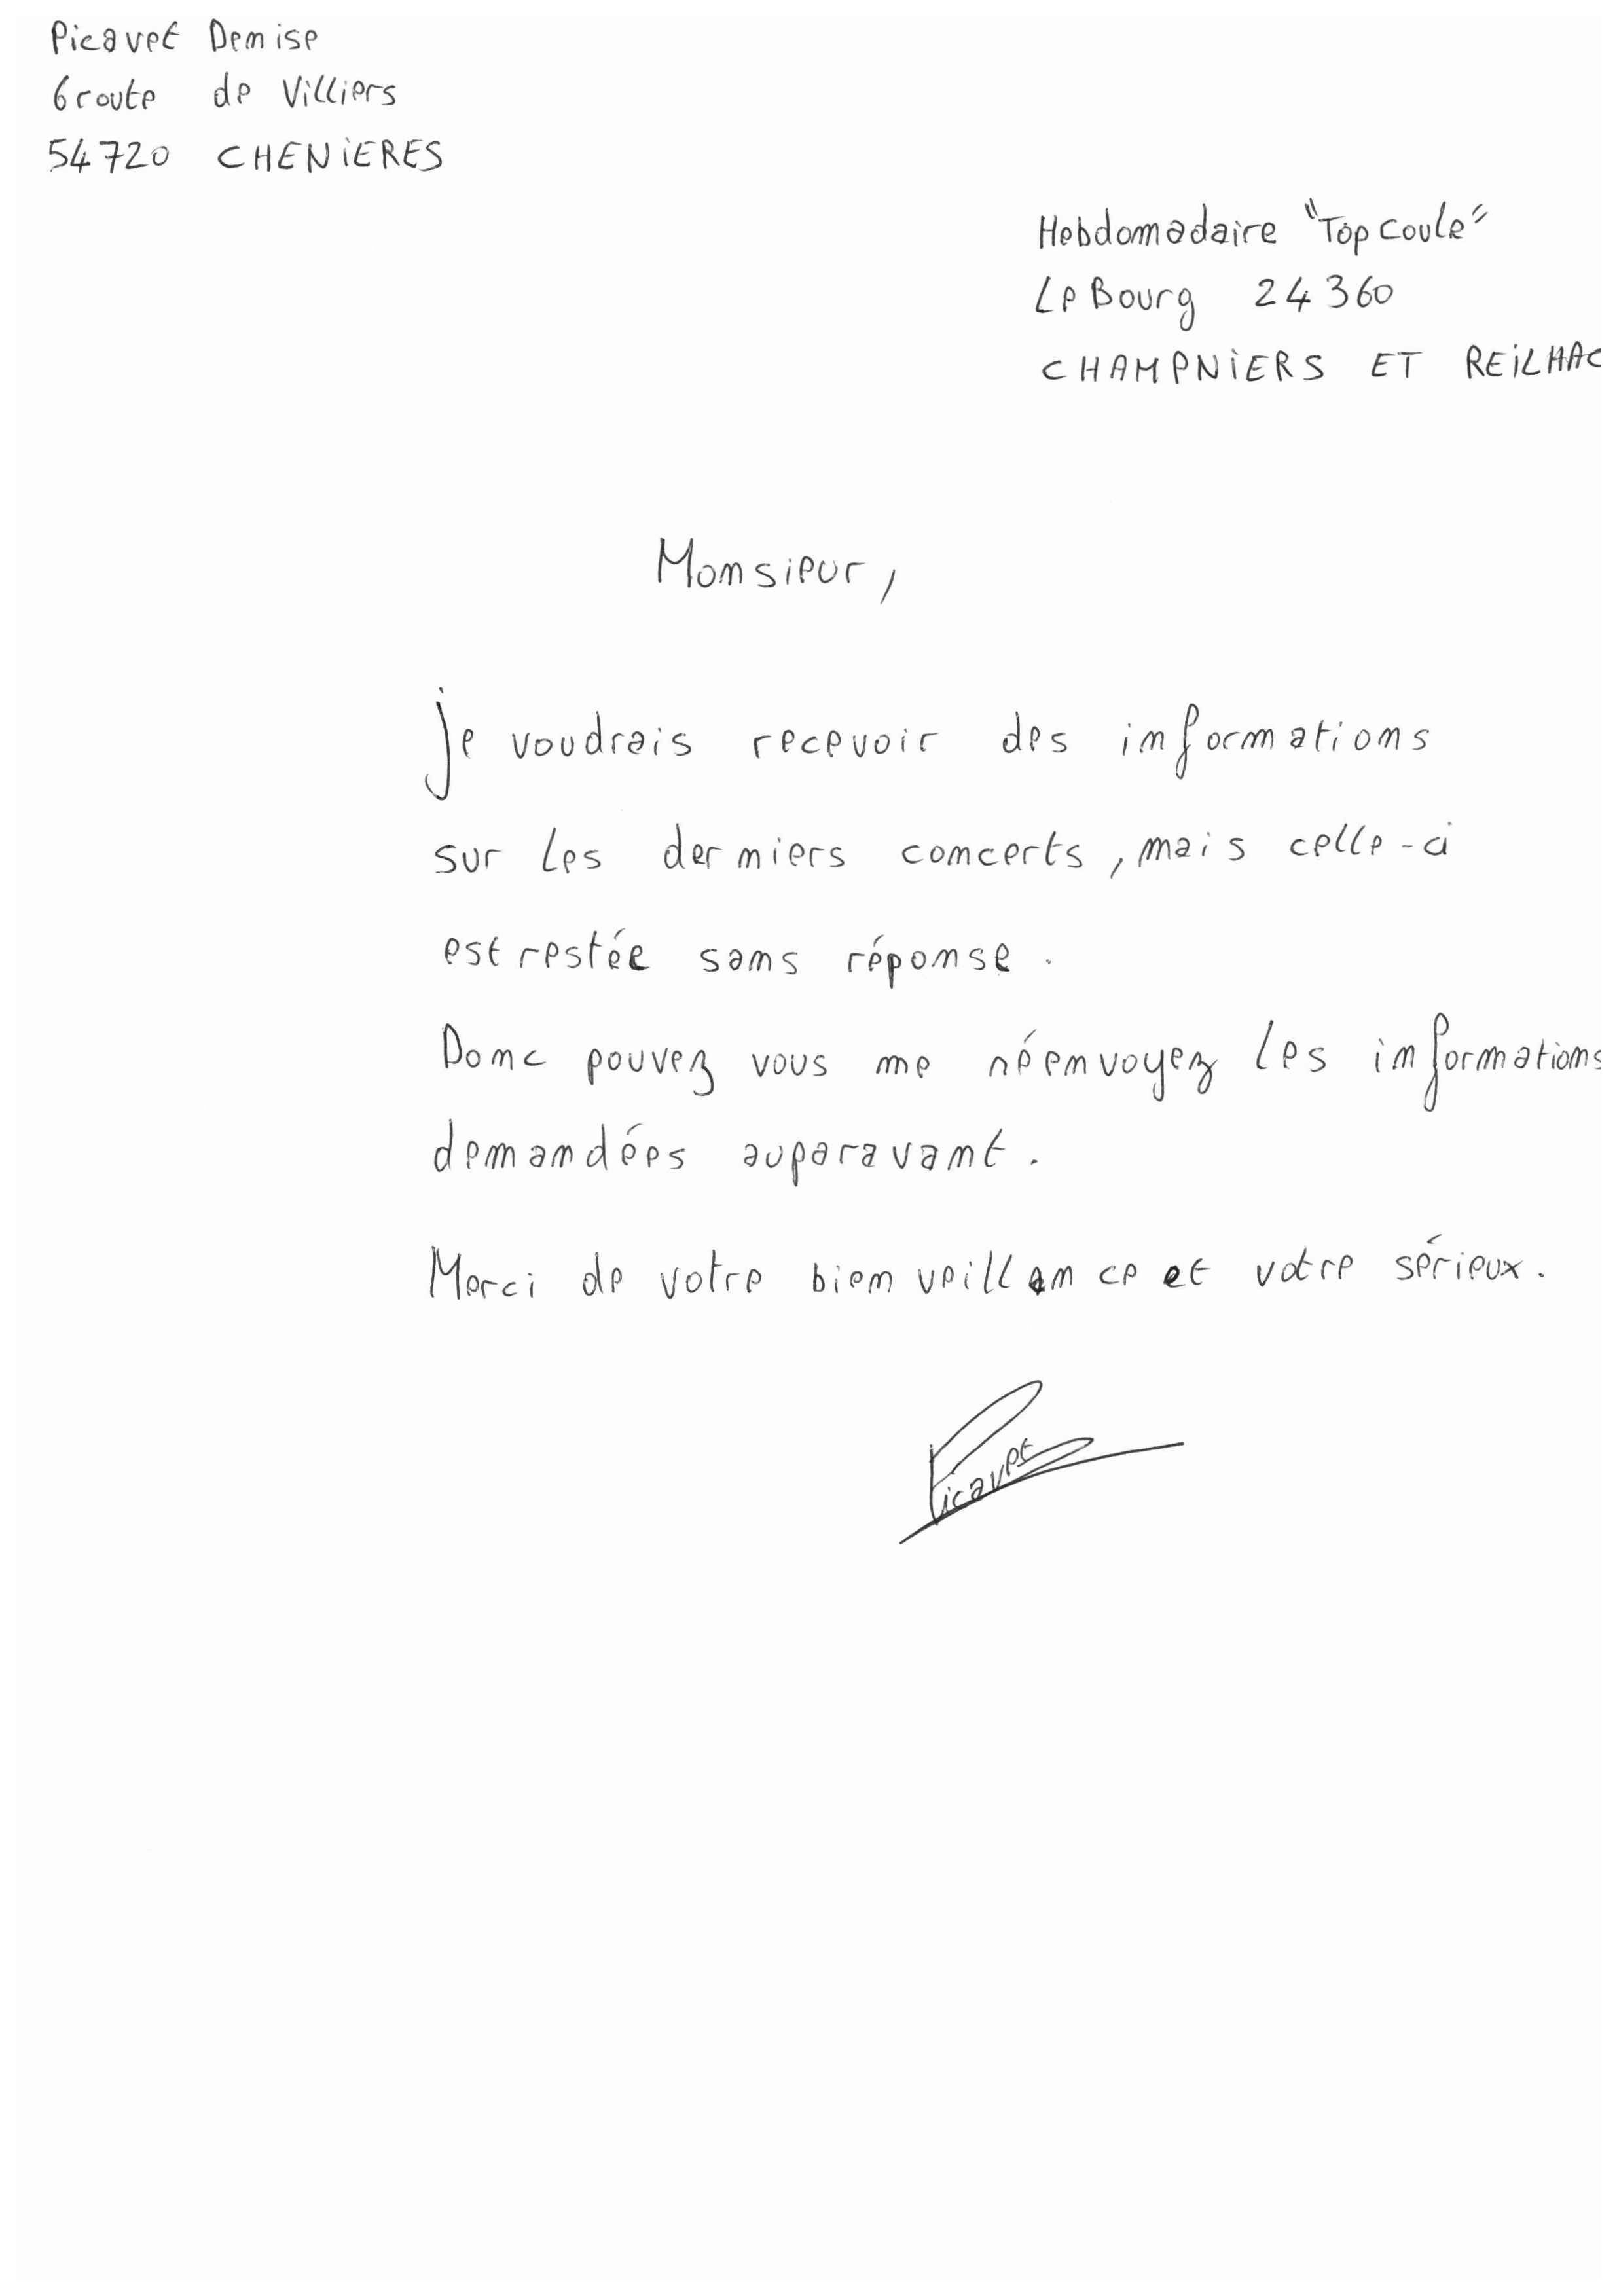 Picavet Denise
6 route de Villiers
54720 CHENIERES
Hebdomadaire "Top Coule"
Le Bourg 24360
CHAMPNIERS ET REILHAC
Monsieur,
je voudrais recevoir des informations
sur les derniers concerts, mais celle-ci
est restée sans réponse.
Donc pouvez vous me réenvoyez les informations
demandées auparavant.
Merci de votre bienveillance et votre sérieux.
Picavet